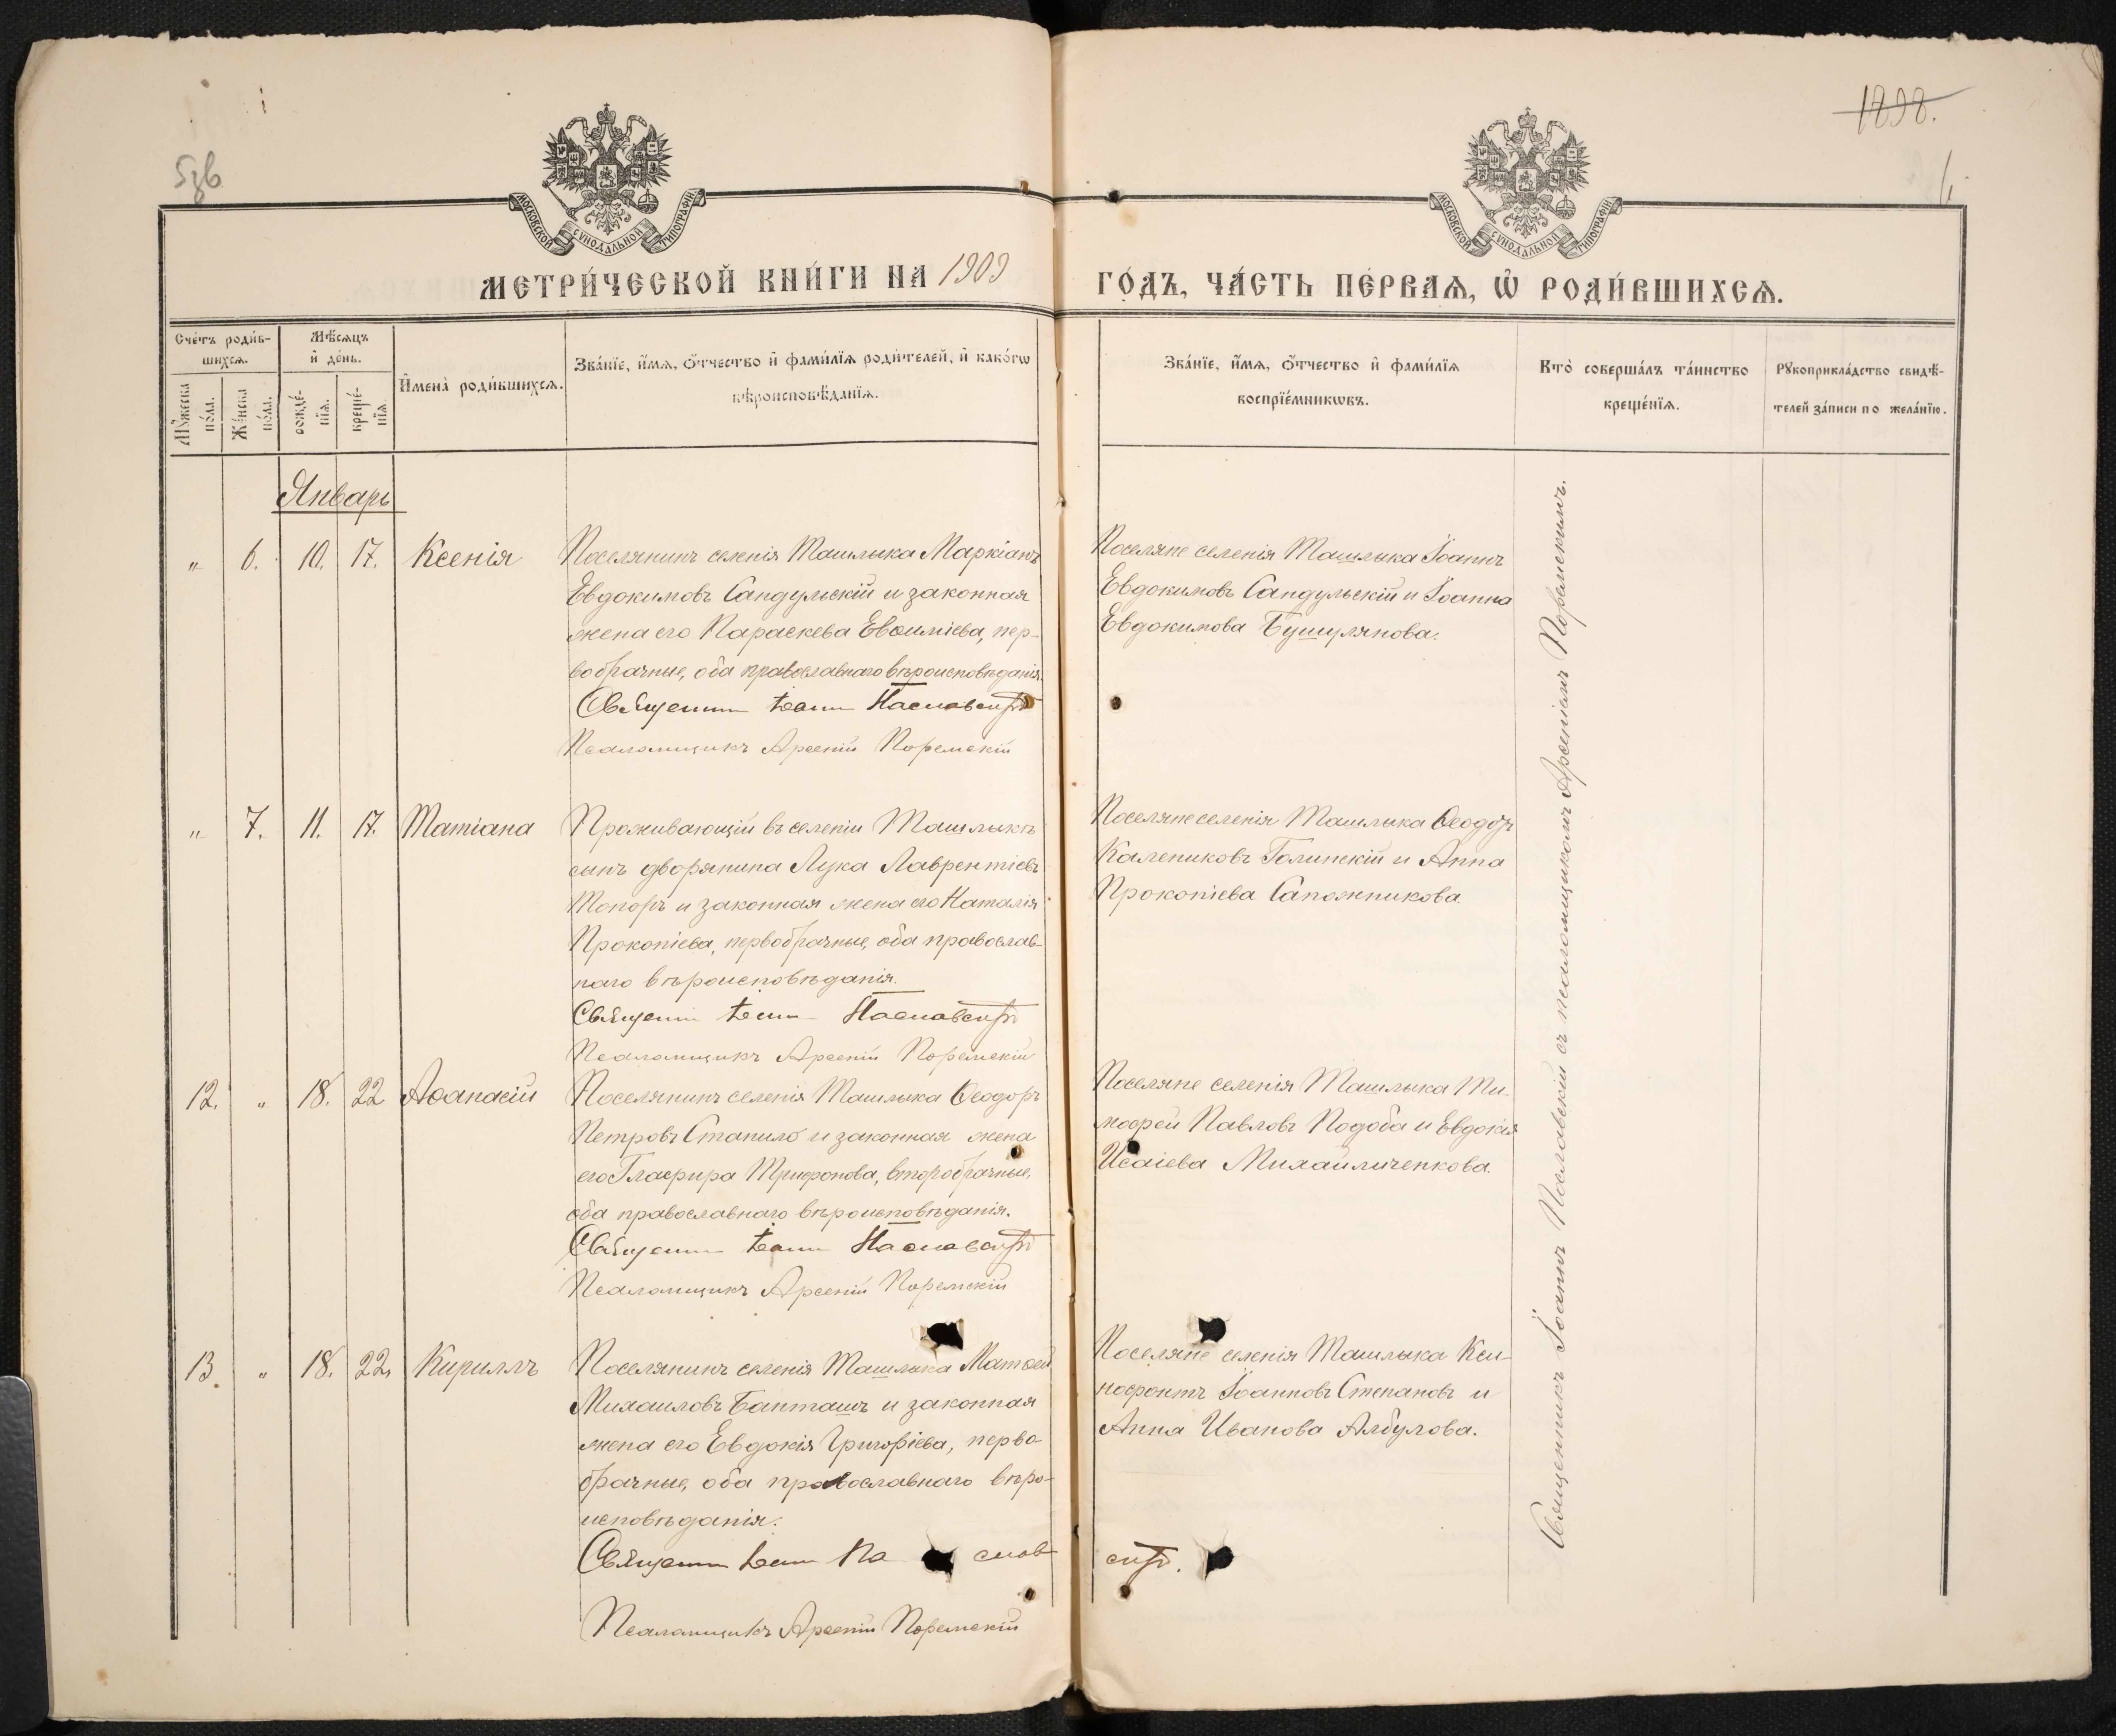 1898.
МОСКОВСКОЙ СѴНОДАЛЬНОЙ ТИПОГРАФІИ
МОСКОВСКОЙ СѴНОДАЛЬНОЙ ТИПОГРАФІИ
МЕТРИ́ЧЕСКОЙ КНИ́ГИ НА 1909 ГО́ДЪ, ЧА́СТЬ ПЕ́РВАѦ, Ѡ҆ РОДИ́ВШИХСѦ.
Сче́тъ роди́в-
шихсѧ.
Мѣ́сѧцъ
и҆ де́нь.
Мꙋ́жеска
по́ла.
Же́нска
по́ла.
рожде́-
нїѧ.
креще́-
нїѧ.
И҆мена̀ роди́вшихсѧ.
Зва́нїе, и҆́мѧ, ѻ҆́тчество и҆ фами́лїѧ роди́телей, и҆ како́гѡ
вѣроисповѣ́данїѧ.
Зва́нїе, и҆́мѧ, ѻ҆́тчество и҆ фами́лїѧ
воспрїе́мникѡвъ.
Кто̀ соверша́лъ та́инство
креще́нїѧ.
Рꙋкоприкла́дство свидѣ́-
телей за́писи по жела́нїю.
Январь
„ 6. 10. 17. Ксенія
Поселянинъ селенія Ташлыка Маркіанъ
Евдокимовъ Сандульскій и законная
жена его Параскева Евѳиміева, пер-
вобрачные, оба православнаго вѣроисповѣданія.
Священник Іоанн Паславскій
Псаломщикъ Арсеній Поремскій
Поселяне селенія Ташлыка Іоаннъ
Евдокимовъ Сандульскій и Іоанна
Евдокимова Бушулянова.
„ 7. 11. 17. Татіана
Проживающій въ селеніи Ташлыкѣ
сынъ дворянина Лука Лаврентіевъ
Топоръ и законная жена его Наталія
Прокопіева, первобрачные, оба православ-
наго вѣроисповѣданія.
Священник Іоанн Паславскій
Псаломщикъ Арсеній Поремскій
Поселяне селенія Ташлыка Ѳеодоръ
Калениковъ Голинскій и Анна
Прокопіева Сапожникова.
12. „ 18. 22 Аѳанасій
Поселянинъ селенія Ташлыка Ѳеодоръ
Петровъ Станило и законная жена
его Глафира Трифонова, второбрачные,
оба православнаго вѣроисповѣданія.
Священник Іоанн Паславскій
Псаломщикъ Арсеній Поремскій
Поселяне селенія Ташлыка Ти-
моѳей Павловъ Подоба и Евдокія
Исаіева Михайличенкова.
13. „ 18. 22. Кириллъ
Поселянинъ селенія Ташлыка Матѳей
Михаиловъ Банташъ и законная
жена его Евдокія Григоріева, перво-
брачные, оба православнаго вѣро-
исповѣданія.
Священник Іоанн Паславскій.
Псаломщикъ Арсеній Поремскій
Поселяне селенія Ташлыка Ксе-
нофонтъ Іоанновъ Степановъ и
Анна Иванова Албулова.
Священникъ Іоаннъ Паславскій съ псаломщикомъ Арсеніемъ Поремскимъ.